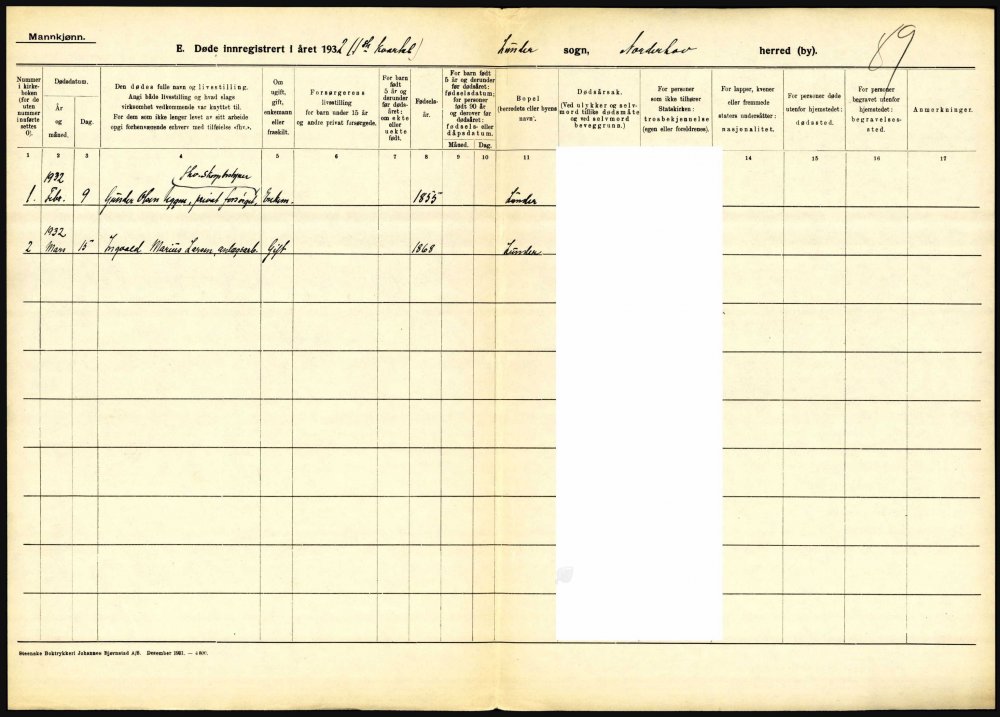 Mannkjønn.
E. Døde innregistrert i året 1932 (1ste kvartal) Lunder sogn, Norderhov herred (by).
89
Nummer i kirkeboken (for de uten nummer innførte settes 0).
Dødsdatum.
År og måned.
Dag.
Den dødes fulle navn og livsstilling.
Angi både livsstilling og hvad slags
virksomhet vedkommende var knyttet til.
For dem som ikke lenger levet av sitt arbeide
opgi forhenværende erhverv med tilføielse «fhv.».
Om ugift, gift, enkemann eller fraskilt.
Forsørgerens
livsstilling
for barn under 15 år
og andre privat forsørgede.
For barn født 5 år og derunder før dødsåret: om ekte eller uekte født.
Fødselsår.
For barn født 5 år og derunder før dødsåret: fødselsdatum; for personer født 90 år og derover før dødsåret: fødsels- eller dåpsdatum.
Måned. Dag.
Bopel
(herredets eller byens navn).
Dødsårsak.
(Ved ulykker og selvmord tillike dødsmåte og ved selvmord beveggrunn.)
For personer
som ikke tilhører
Statskirken:
trosbekjennelse
(egen eller foreldrenes).
For lapper, kvener
eller fremmede
staters undersåtter:
nasjonalitet.
For personer døde
utenfor hjemstedet:
dødssted.
For personer
begravet utenfor
hjemstedet:
begravelsessted.
Anmerkninger.
1 2 3 4 5 6 7 8 9 10 11 14 15 16 17
1932 fhv. skogbruker
1. Febr. 9 Gunder Olsen privat forsørget, Enkem. 1855 Lunder
1932
2 Mars 15 Ingvald Marius Larsen, anlegsarb. Gift 1868 Lunder
Steenske Boktrykkeri Johannes Bjørnstad A/S. Desember 1931. —